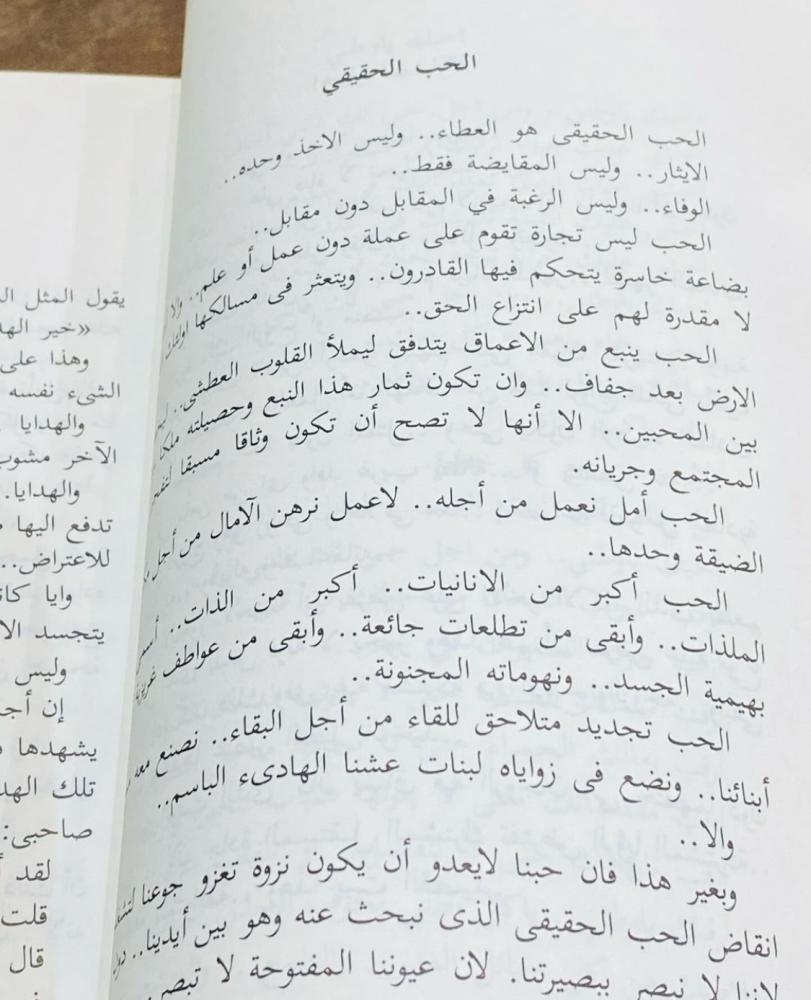 الحب الحقيقي
الحب الحقيقى هو العطاء.. وليس الاخذ وحده..
الايثار.. وليس المقايضة فقط..
الوفاء.. وليس الرغبة في المقابل دون مقابل..
الحب ليس تجارة تقوم على عملة دون عمل أو علم.. والا
بضاعة خاسرة يتحكم فيها القادرون.. ويتعثر فى مسالكها اولئك
لا مقدرة لهم على انتزاع الحق..
الحب ينبع من الاعماق يتدفق ليملأ القلوب العطشى..
الارض بعد جفاف.. وان تكون ثمار هذا النبع وحصيلته ملكا
بين المحبين.. الا أنها لا تصح أن تكون وثاقا مسبقا
المجتمع وجريانه.
الحب أمل نعمل من أجله.. لاعمل نرهن الآمال من أجل
الضيقة وحدها..
الحب أكبر من الانانيات.. أكبر من الذات..
الملذات.. وأبقى من تطلعات جائعة.. وأبقى من عواطف
بهيمية الجسد.. ونهوماته المجنونة..
الحب تجديد متلاحق للقاء من أجل البقاء.. نصنع معه
أبنائنا.. ونضع فى زواياه لبنات عشنا الهادىء الباسم..
والا..
وبغير هذا فان حبنا لايعدو أن يكون نزوة تغزو جوعنا
انقاض الحب الحقيقى الذى نبحث عنه وهو بين أيدينا..
لاننا لا نبصر ببصيرتنا. لان عيوننا المفتوحة لا تبصر
يقول المثل
«خير
وهذا على
الشىء نفسه
والهدايا
الآخر مشوب
والهدايا.
تدفع اليها
للاعتراض..
وايا
يتجسد
وليس
إن
يشهدها
تلك
صاحبى:
لقد
قلت
قال